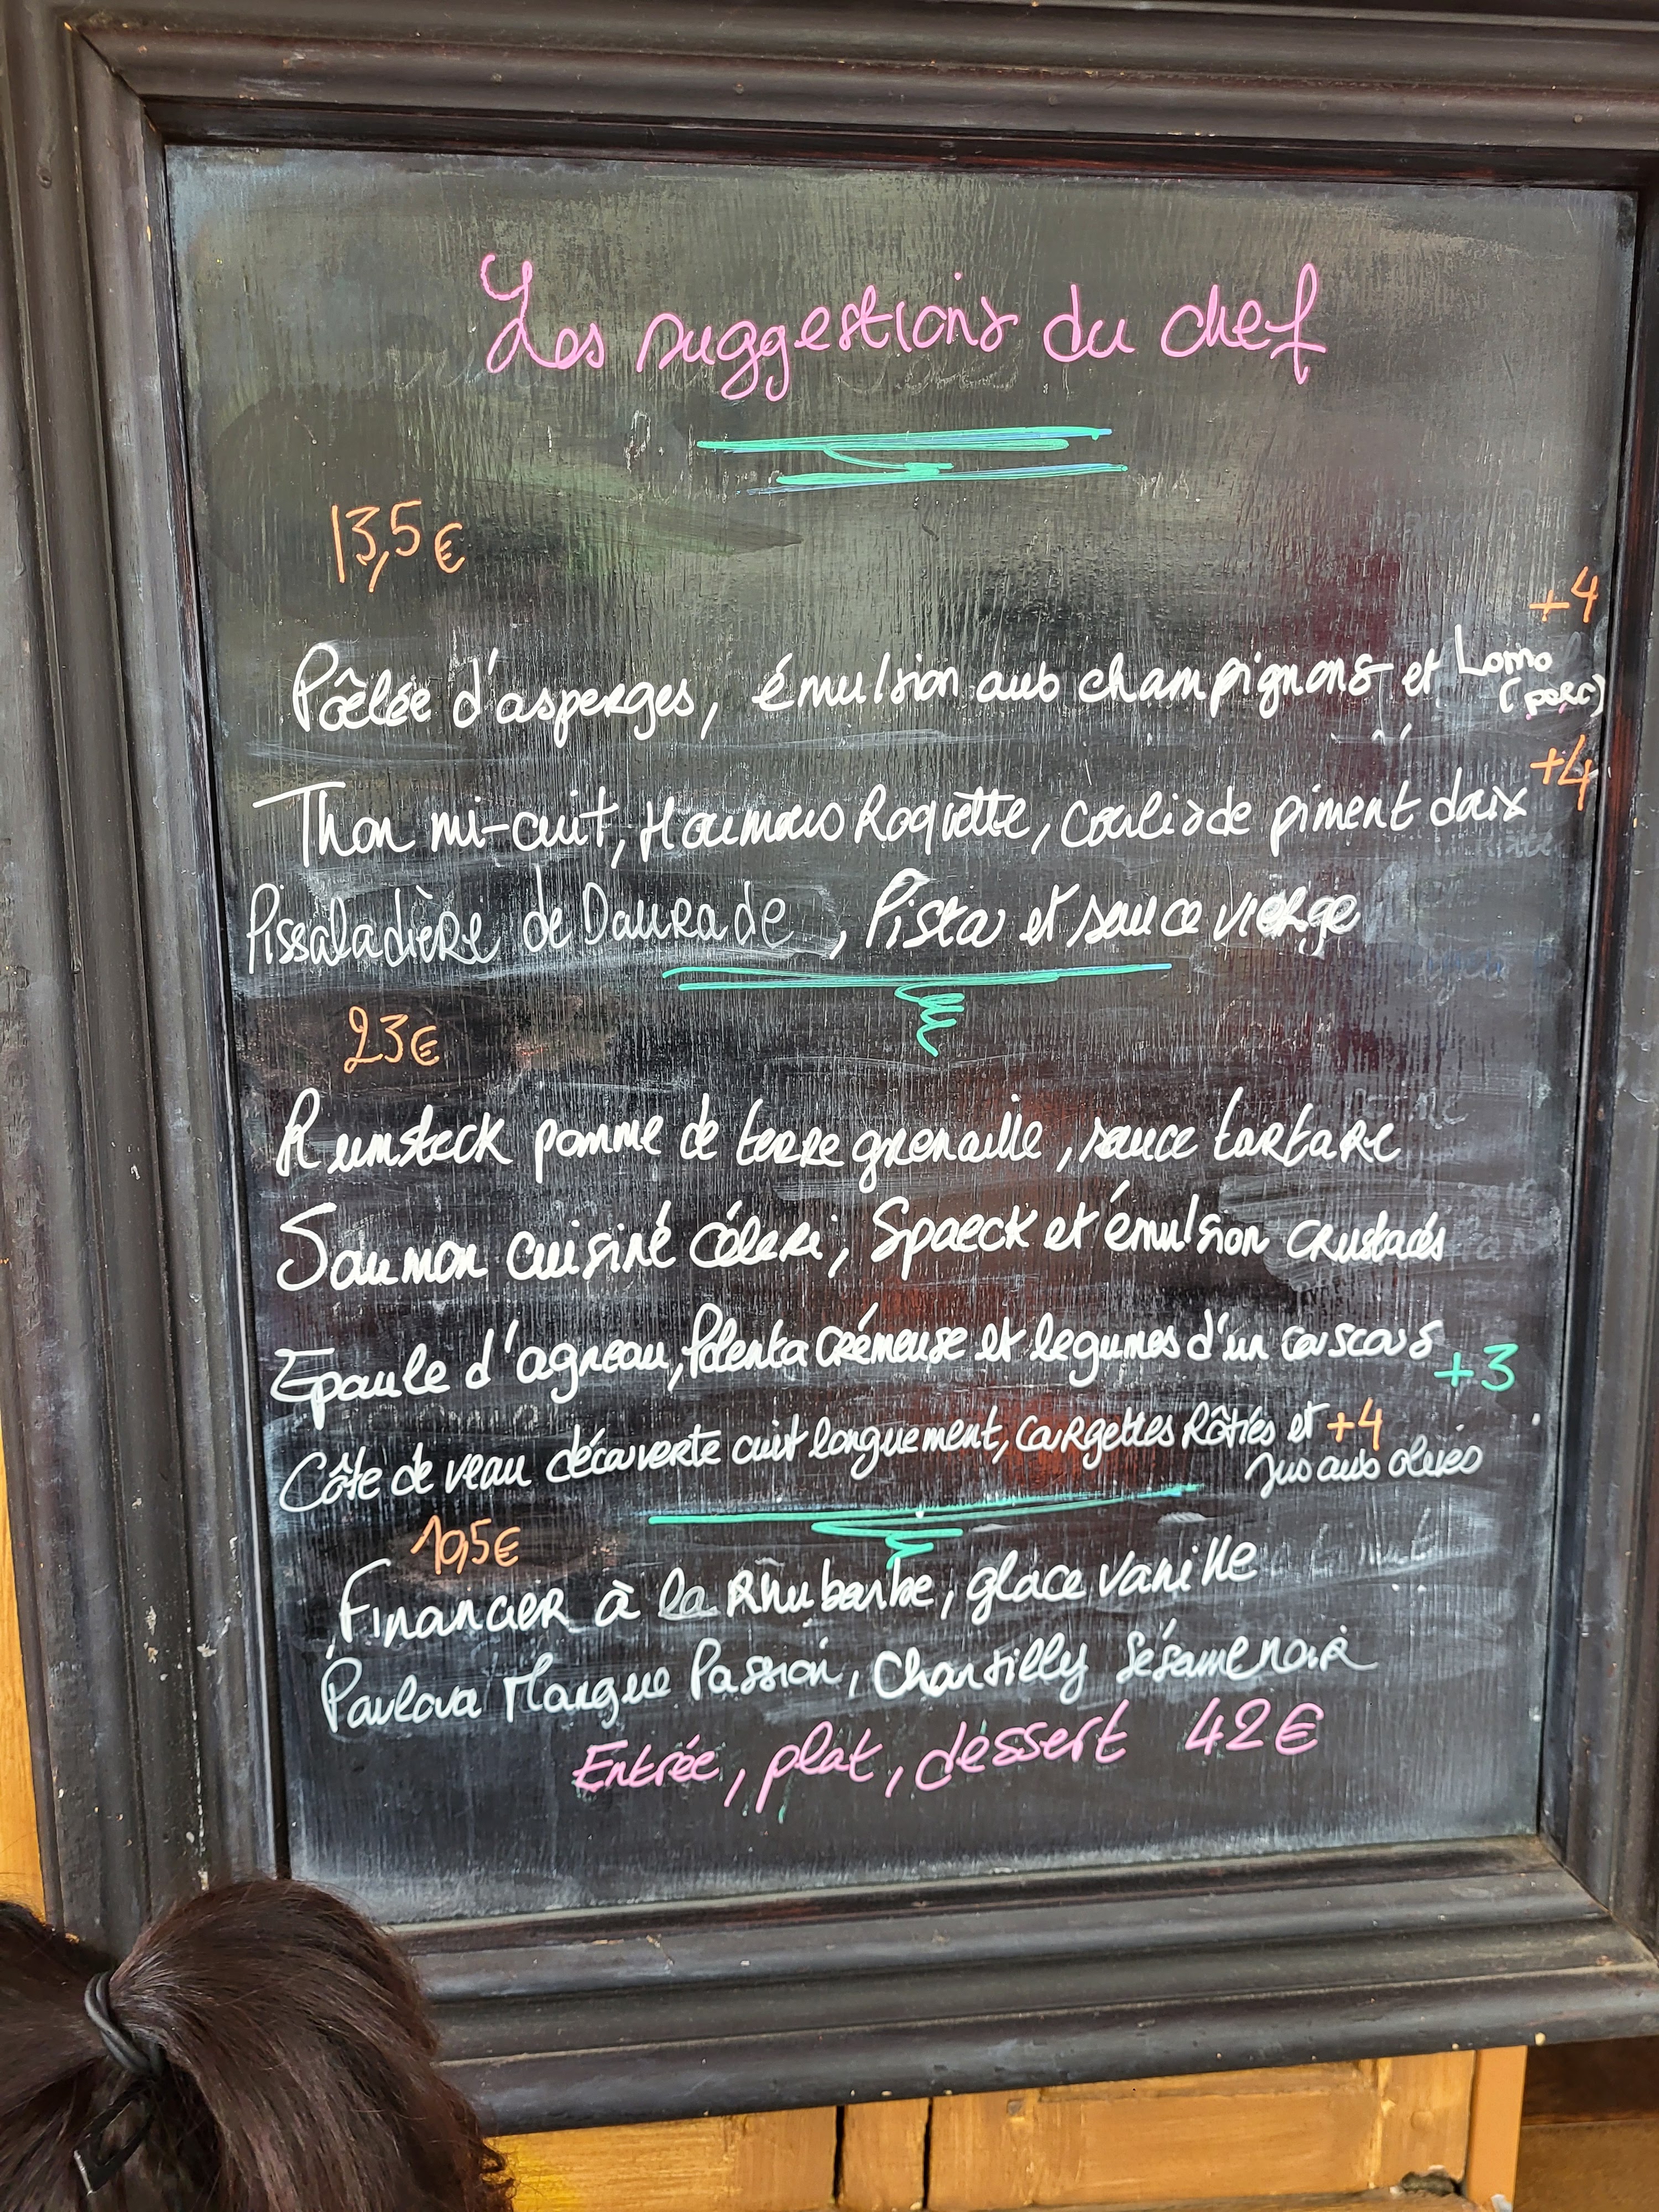 Les suggestions du chef
13,5€
+4
Pôêlée d'asperges, émulsion aux champignons et Lomo
(porc)
+4
Thon mi-cuit, Houmous Roquette, coulis de piment doux
Pissaladière de Daurade, Pistou et sauce vierge
23€
Rumsteck pomme de terre grenaille, sauce tartare
Saumon cuisiné céleri, Spaeck et émulsion crustacés
Epaule d'agneau, Polenta crémeuse et legumes d'un couscous +3
Côte de veau découverte cuit longuement, courgettes Rôties et +4
Jus aux olives
10,5€
Financier à la Rhubarbe, glace vanille
Pavlova Mangue Passion, Chantilly Sésame noir
Entrée, plat, dessert 42€